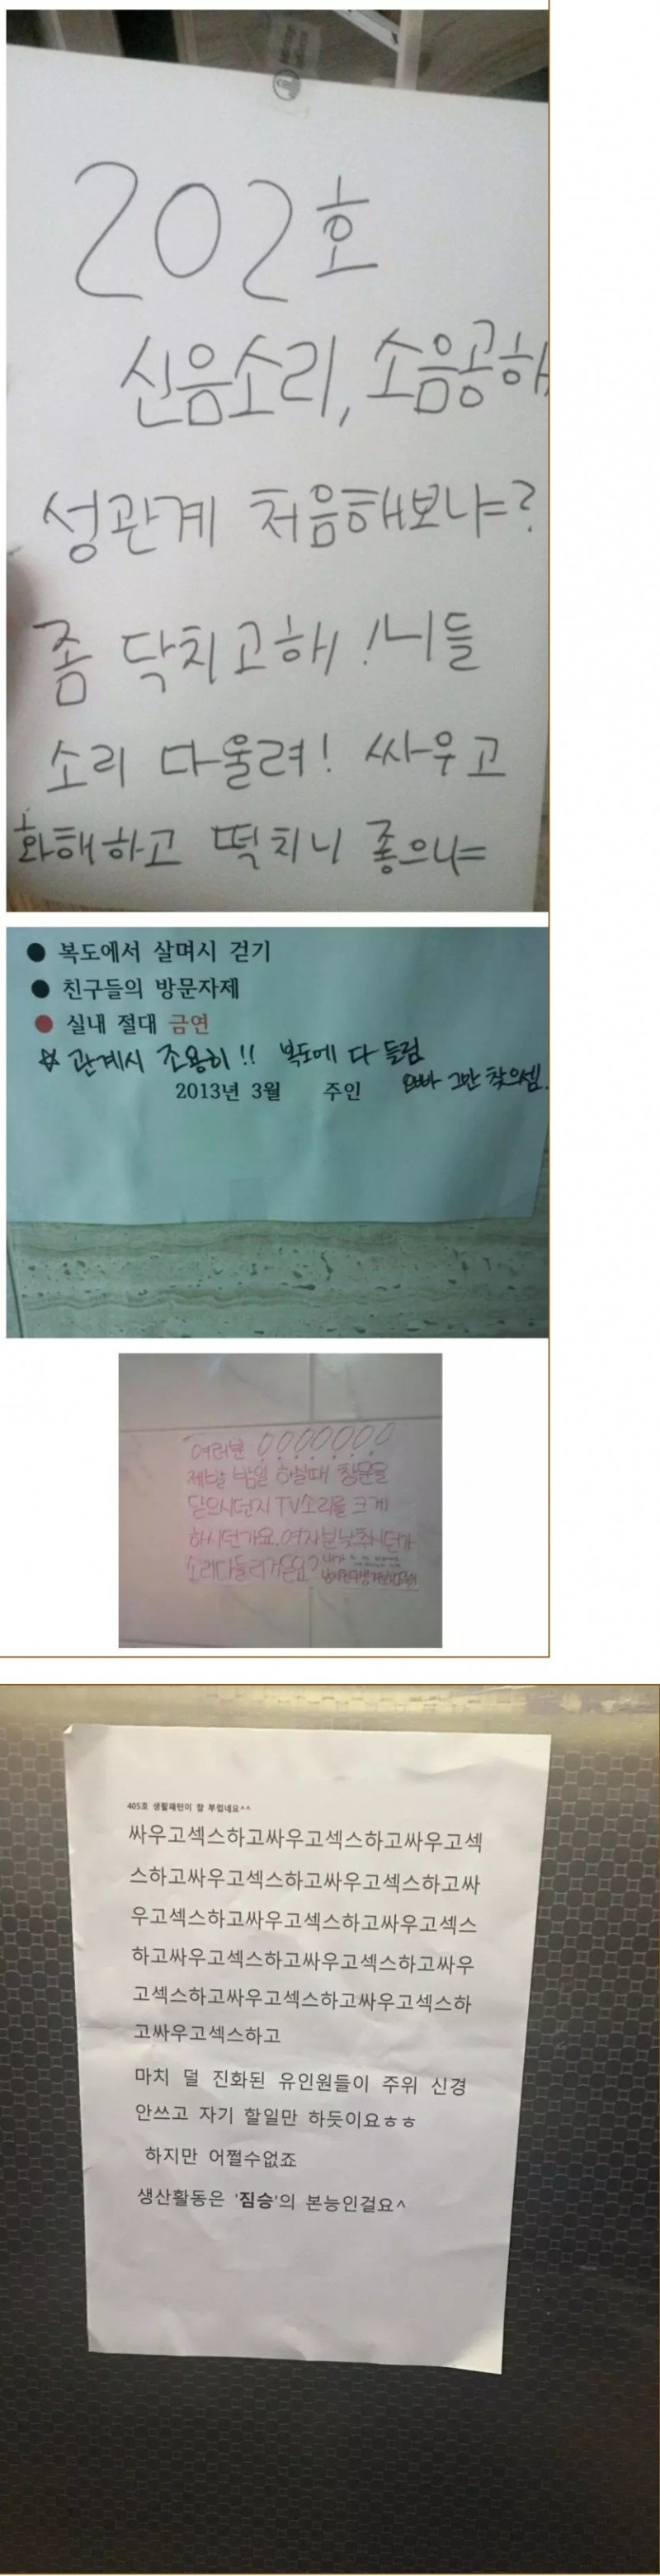 202호
신음소리, 소음공해
성관계 처음해보냐?
좀 닥치고해! 니들
소리 다울려! 싸우고
화해하고 떡치니 좋으냐
● 복도에서 살며시 걷기
● 친구들의 방문자제
● 실내 절대 금연
☆ 관계시 조용히!! 복도에 다 들림
오빠 그만 찾으셈.
2013년 3월 주인
여러분 !!!!!!!
제발 밤일 하실때 창문을
닫으시던지 TV소리를 크게
하시던가요. 여자분 낮추시던가
소리다들리거든요?
405호 생활패턴이 참 부럽네요^^
싸우고섹스하고싸우고섹스하고싸우고섹
스하고싸우고섹스하고싸우고섹스하고싸
우고섹스하고싸우고섹스하고싸우고섹스
하고싸우고섹스하고싸우고섹스하고싸우
고섹스하고싸우고섹스하고싸우고섹스하
고싸우고섹스하고
마치 덜 진화된 유인원들이 주위 신경
안쓰고 자기 할일만 하듯이요ㅎㅎ
하지만 어쩔수없죠
생산활동은 '짐승'의 본능인걸요^